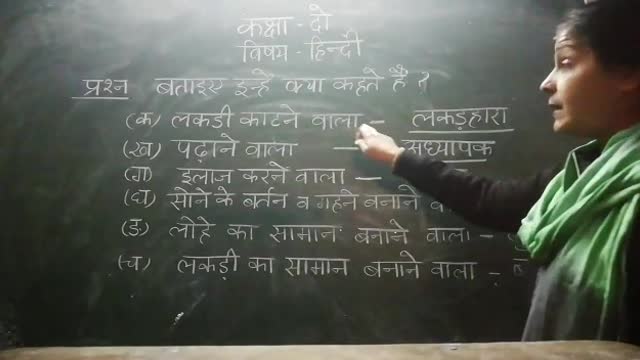 कक्षा - दो
विषय - हिन्दी
प्रश्न बताइए इन्हें क्या कहते हैं ?
(क) लकडी काटने वाला - लकड़हारा
(ख) पढ़ाने वाला - अध्यापक
(ग) इलाज करने वाला -
(घ) सोने के बर्तन व गहने बनाने
(ङ) लोहे का सामान बनाने वाला -
(च) लकड़ी का सामान बनाने वाला -